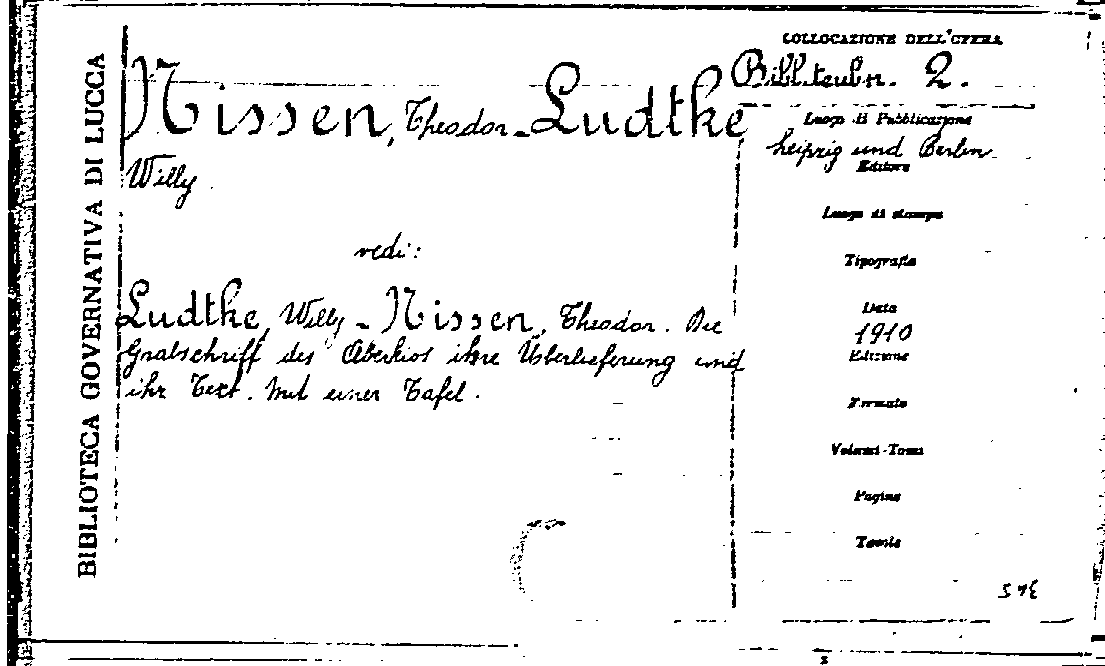 BIBLIOTECA GOVERNATIVA DI LUCCA
Nissen, Theodor - Ludtke
Willy
vedi:
Ludtke, Willy - Nissen, Theodor. Die
Grabschrift des Aberkios ihre Überlieferung und
ihr Text. Mit einer Tafel.
COLLOCAZIONE DELL'OPERA
Bibl. teubn. 2.
Luogo di Pubblicazione
Leipzig und Berlin
Editore
Luogo di stampa
Tipografia
Data
1910
Edizione
Formato
Volumi-Tomi
Pagine
Tavole